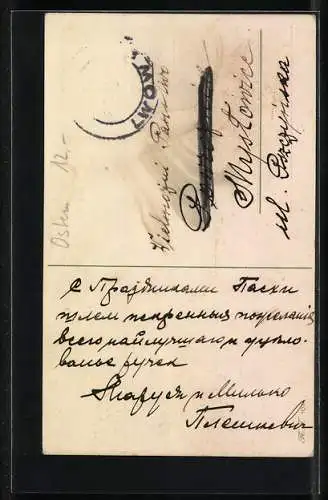 LWÓW
Ostern 12.-
Wielmożni Państwo
Mysłowice
ul. Pszczyńska
С Праздниками Пасхи
шлем искренния пожелания
всего найлучшаго и цѣло-
ванье ручек
Маруся и Милько
Плешкевич